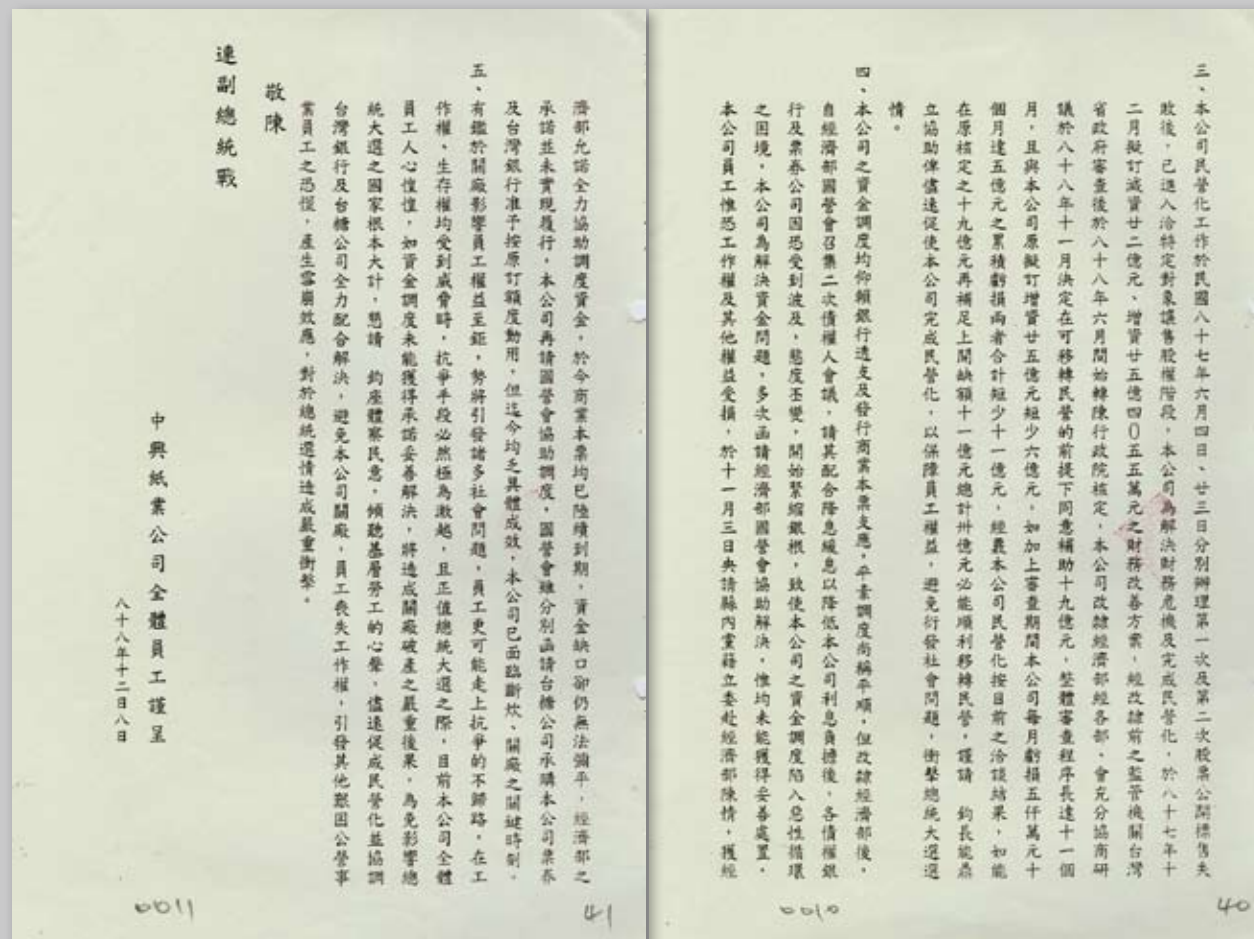 三、本公司民營化工作於民國八十七年六月四日、廿三日分別辦理第一次及第二次股票公開標售失
敗後，已進入洽特定對象讓售股權階段，本公司為解決財務危機及完成民營化，於八十七年十
二月擬訂減資廿二億元、增資廿五億四０五五萬元之財務改善方案，經改隸前之監管機關台灣
省政府審查後於八十八年六月間始轉陳行政院核定，本公司改隸經濟部經各部、會充分協商研
議於八十八年十一月決定在可移轉民營的前提下同意補助十九億元，整體審查程序長達十一個
月，且與本公司原擬訂增資廿五億元短少六億元，如加上審查期間本公司每月虧損五仟萬元十
個月達五億元之累積虧損兩者合計短少十一億元，經彙本公司民營化按目前之洽談結果，如能
在原核定之十九億元再補足上開缺額十一億元總計卅億元必能順利移轉民營，謹請　鈞長能鼎
立協助俾儘速促使本公司完成民營化，以保障員工權益，避免衍發社會問題，衝擊總統大選選
情。
四、本公司之資金調度均仰賴銀行透支及發行商業本票支應，平素調度尚稱平順，但改隸經濟部後，
自經濟部國營會召集二次債權人會議，請其配合降息緩息以降低本公司利息負擔後，各債權銀
行及票券公司因恐受到波及，態度丕變，開始緊縮銀根，致使本公司之資金調度陷入惡性循環
之困境，本公司為解決資金問題，多次函請經濟部國營會協助解決，惟均未能獲得妥善處置，
本公司員工惟恐工作權及其他權益受損，於十一月三日央請縣內黨籍立委赴經濟部陳情，獲經
0010
40
濟部允諾全力協助調度資金，於今商業本票均已陸續到期，資金缺口卻仍無法彌平，經濟部之
承諾並未實現履行，本公司再請國營會協助調度，國營會雖分別函請台糖公司承購本公司票券
及台灣銀行准予按原訂額度動用，但迄今均乏具體成效，本公司已面臨斷炊、關廠之關鍵時刻。
五、有鑑於關廠影響員工權益至鉅，勢將引發諸多社會問題，員工更可能走上抗爭的不歸路，在工
作權、生存權均受到威脅時，抗爭手段必然極為激越，且正值總統大選之際，目前本公司全體
員工人心惶惶，如資金調度未能獲得承諾妥善解決，將造成關廠破產之嚴重後果，為免影響總
統大選之國家根本大計，懇請　鈞座體察民意，傾聽基層勞工的心聲，儘速促成民營化並協調
台灣銀行及台糖公司全力配合解決，避免本公司關廠，員工喪失工作權，引發其他艱困公營事
業員工之恐慌，產生雪崩效應，對於總統選情造成嚴重衝擊。
敬陳
連副總統戰
中興紙業公司全體員工謹呈
八十八年十二月八日
0011
41